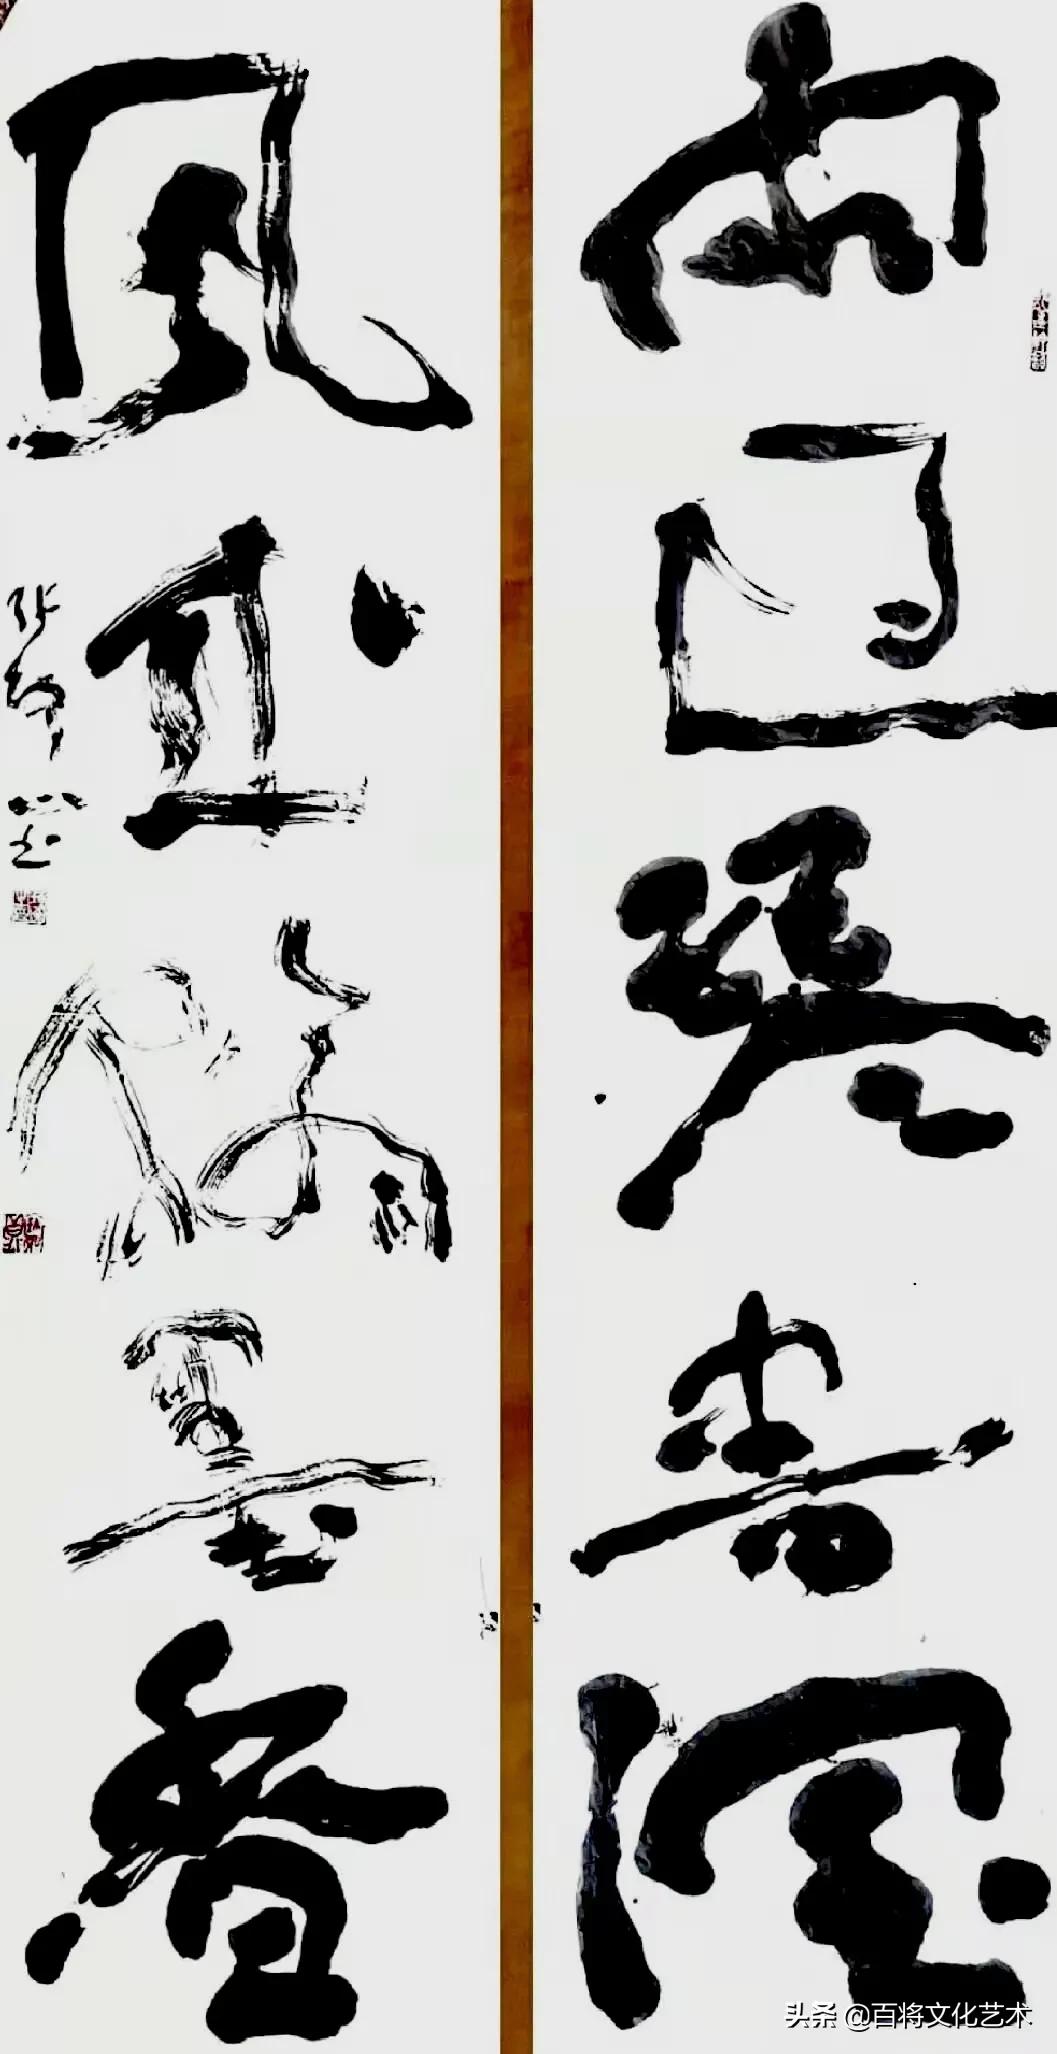 雨过琴书润
风来翰墨香
头条 @百将文化艺术